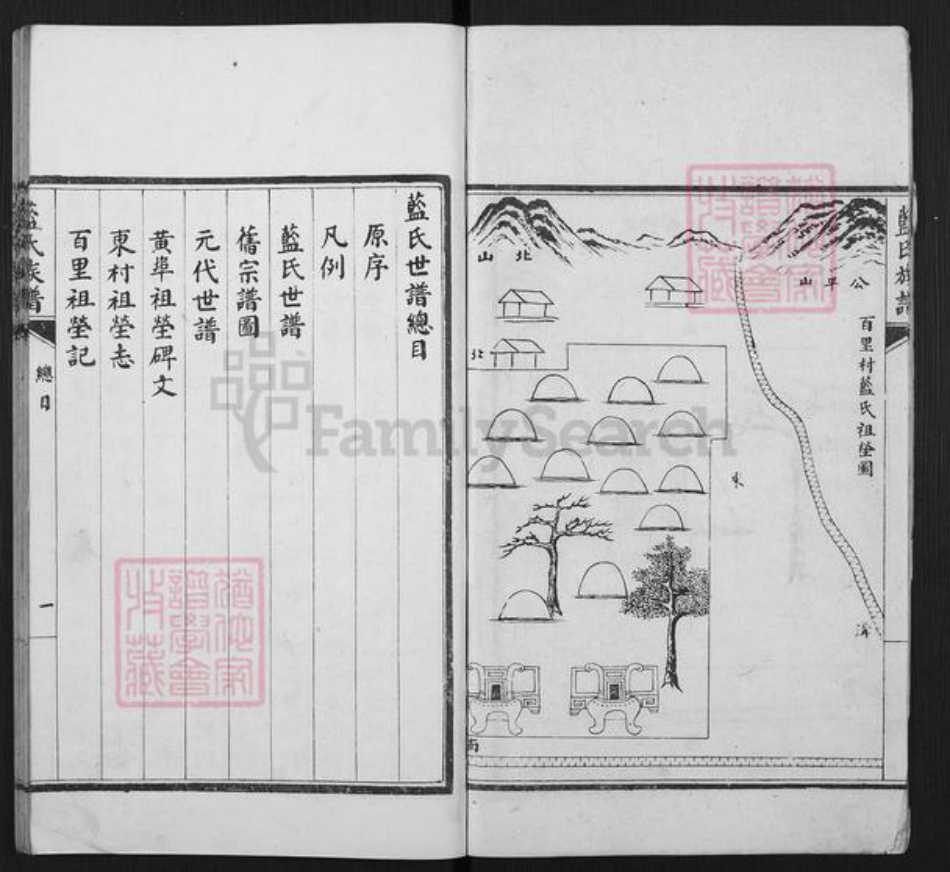 藍氏族譜
百里村藍氏祖塋圖
公平山
北山
北
東
溝
南
藍氏世譜總目
原序
凡例
藍氏世譜
舊宗譜圖
元代世譜
黃埠祖塋碑文
東村祖塋志
百里祖塋記
藍氏族譜
總目
一
譜學會
收藏
FamilySearch